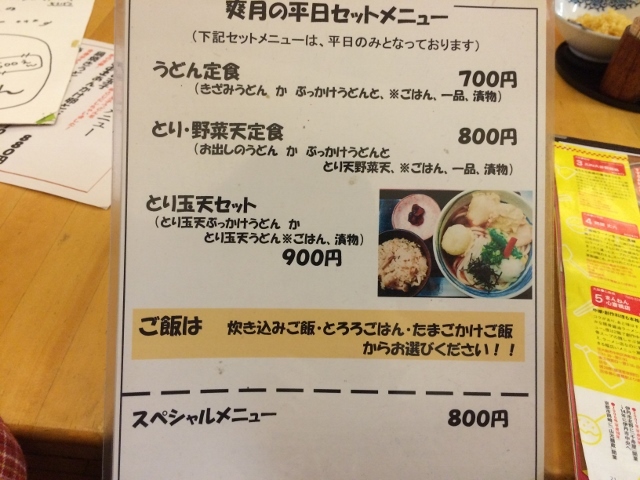 爽月の平日セットメニュー
（下記セットメニューは、平日のみとなっております）
うどん定食 700円
（きざみうどん か ぶっかけうどんと、※ごはん、一品、漬物）
とり・野菜天定食 800円
（お出しのうどん か ぶっかけうどんと
とり天野菜天、※ごはん、一品、漬物）
とり玉天セット
（とり玉天ぶっかけうどん か
とり玉天うどん※ごはん、漬物）
900円
ご飯は 炊き込みご飯・とろろごはん・たまごかけご飯
からお選びください！！
スペシャルメニュー 800円